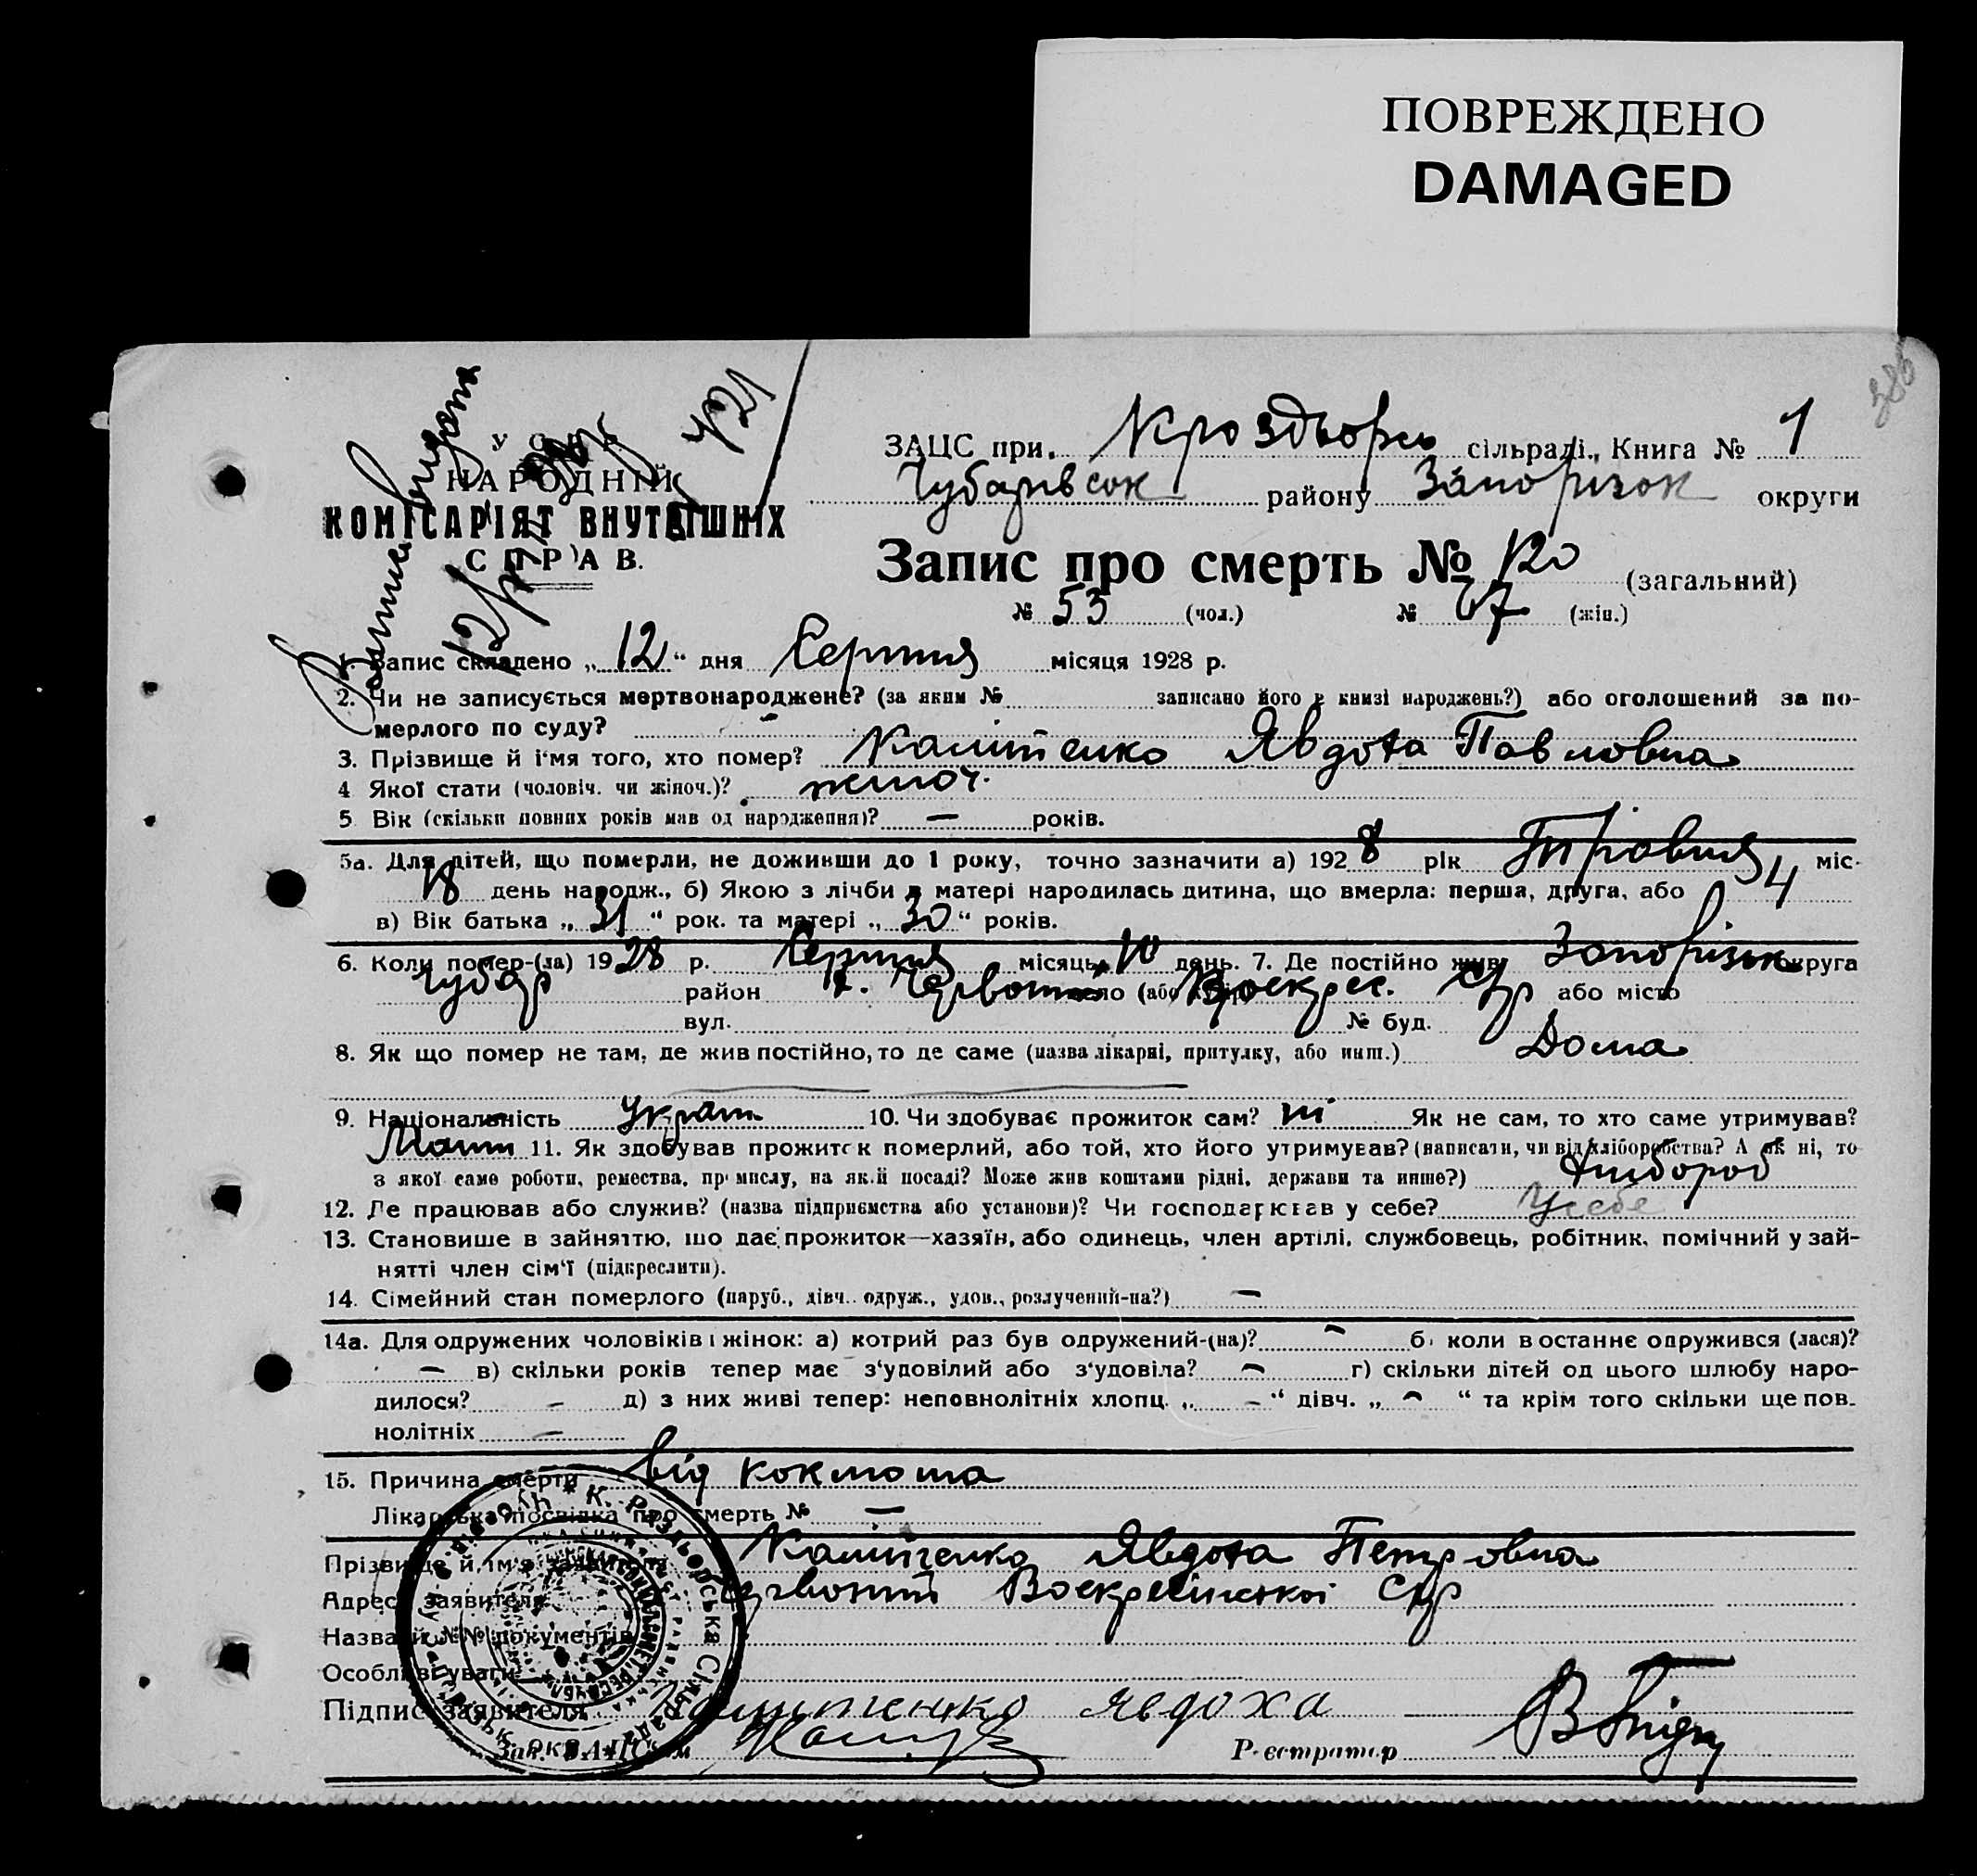 ПОВРЕЖДЕНО
DAMAGED
386
У С Р Р
НАРОДНІЙ
КОМІСАРІЯТ ВНУТРІШНІХ
СПРАВ.
ЗАЦС при Кроздворсь сільраді, Книга № 1
Чубарівсок району Запорізок округи
Запис про смерть № 120 (загальний)
№ 53 (чол.) № 67 (жін.)
1. Запис складено „12“ дня Серпня місяця 1928 р.
2. Чи не записується мертвонароджене? (за яким № записано його в книзі народжень?) або оголошений за по-
мерлого по суду? -
3. Прізвище й і‘мя того, хто помер? Калітенко Явдота Павловна
4 Якої стати (чоловіч. чи жіноч.)? жіноч.
5 Вік (скільки повних років мав од народження)? — років.
5а. Для дітей, що померли, не доживши до 1 року, точно зазначити а) 1928 рік Травня міс.
18 день народж., б) Якою з лічби в матері народилась дитина, що вмерла: перша, друга, або 4
в) Вік батька „31“ рок. та матері „30“ років.
6. Коли помер-(ла) 1928 р. Серпня місяць 10 день. 7. Де постійно жив Запорізьк округа
Чубар район Воскрес. або місто
вул. № буд.
8. Як що помер не там, де жив постійно, то де саме (назва лікарні, притулку, або инш.) Дома
9. Національність Україн 10. Чи здобуває прожиток сам? ні Як не сам, то хто саме утримував?
Мати 11. Як здобував прожиток померлий, або той, хто його утримував? (написати, чи від хліборобства? А як ні, то
з якої саме роботи, ремества, промислу, на якій посаді? Може жив коштами рідні, держави та инше?) Хлібороб
12. Де працював або служив? (назва підприємства або установи)? Чи господарював у себе? У себе
13. Становище в зайняттю, що дає прожиток—хазяїн, або одинець, член артілі, службовець, робітник, помічний у зай-
нятті член сім‘ї (підкреслити).
14. Сімейний стан померлого (паруб., дівч., одруж., удов., розлучений-на?) —
14а. Для одружених чоловіків і жінок: а) котрий раз був одружений-(на)? - б) коли востаннє одружився (лася)?
— в) скільки років тепер має з‘удовілий або з‘удовіла? - г) скільки дітей од цього шлюбу наро-
дилося? - д) з них живі тепер: неповнолітніх хлопц. „ - “ дівч. „ - “ та крім того скільки ще пов-
нолітніх —
15. Причина смерти від коклюша
Лікарська посвідка про смерть № —
Прізвище й ім‘я заявителя Калітенко Явдота Петровна
Адреса заявителя Воскресінської
Назва й №№ документів
Особливі уваги
Підпис заявителя Калитенко Явдоха
Зав. ЗАЦС‘ом Реєстратор